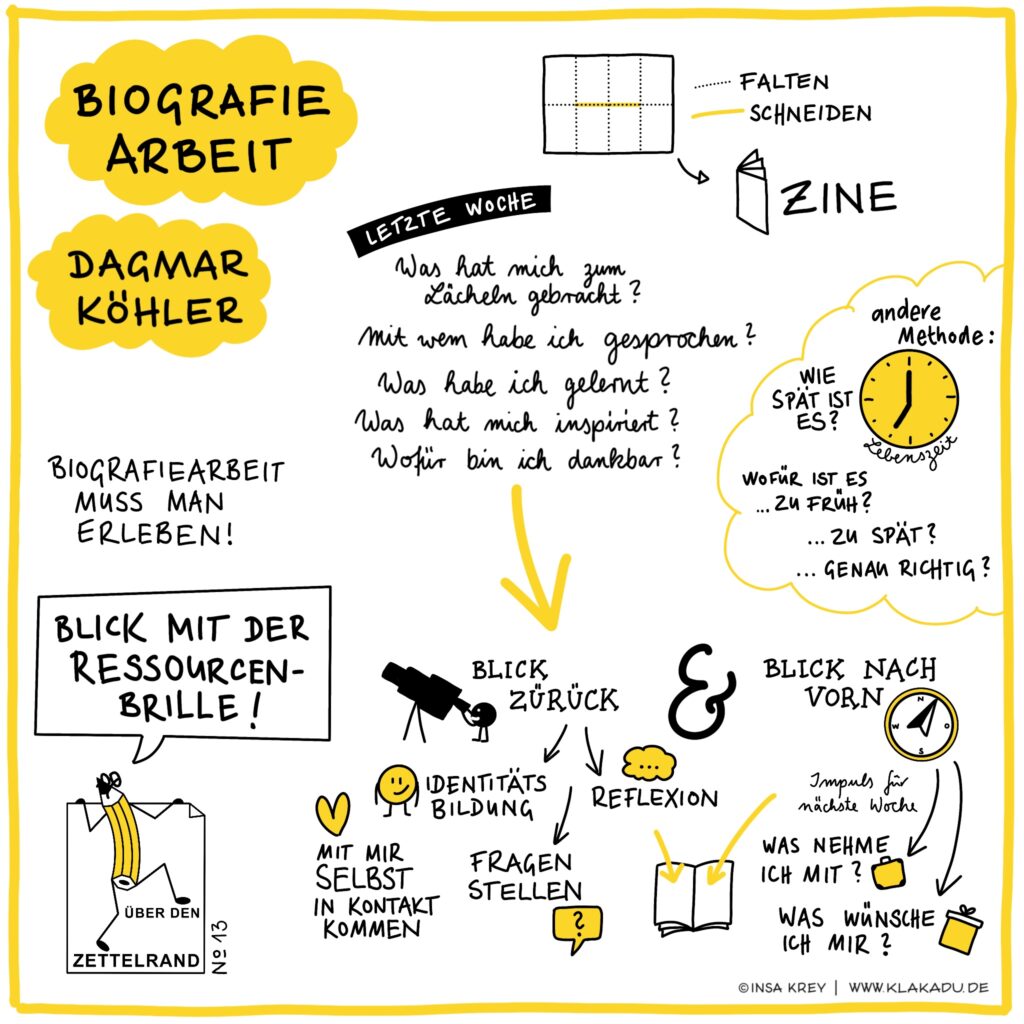 BIOGRAFIE
ARBEIT
DAGMAR
KÖHLER
FALTEN
SCHNEIDEN
ZINE
LETZTE WOCHE
Was hat mich zum
Lächeln gebracht?
Mit wem habe ich gesprochen?
Was habe ich gelernt?
Was hat mich inspiriert?
Wofür bin ich dankbar?
andere
Methode:
WIE
SPÄT IST
ES?
Lebenszeit
WOFÜR IST ES
...ZU FRÜH?
...ZU SPÄT?
...GENAU RICHTIG?
BIOGRAFIEARBEIT
MUSS MAN
ERLEBEN!
BLICK MIT DER
RESSOURCEN-
BRILLE!
ÜBER DEN
ZETTELRAND
No 13
BLICK
ZÜRÜCK
&
BLICK NACH
VORN
N
W O
S
IDENTITÄTS
BILDUNG
REFLEXION
MIT MIR
SELBST
IN KONTAKT
KOMMEN
FRAGEN
STELLEN
?
Impuls für
nächste Woche
WAS NEHME
ICH MIT?
WAS WÜNSCHE
ICH MIR?
©INSA KREY | WWW.KLAKADU.DE